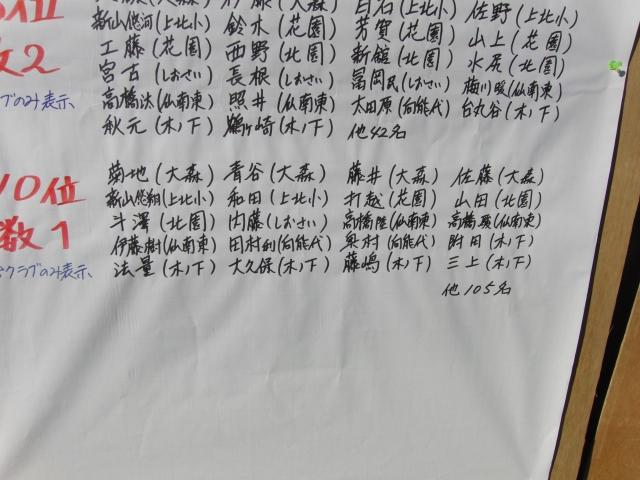 位
新山悠河(上北小) 鈴木(花園) 芳賀(花園) 佐野(上北小)
工藤(花園) 西野(北園) 新舘(北園) 山上(花園)
数2
宮古(しおさい) 長根(しおさい) 冨岡民(しおさい) 水尻(北園)
ブのみ表示
高橋汰(仙南東) 照井(仙南東) 太田原(向能代) 梅川暖(仙南東)
秋元(木ノ下) 鶴ヶ崎(木ノ下) 他42名 台丸谷(木ノ下)
10位
菊地(大森) 青谷(大森) 藤井(大森) 佐藤(大森)
新山悠翔(上北小) 和田(上北小) 打越(花園) 山田(北園)
数1
斗澤(北園) 内藤(しおさい) 高橋陸(仙南東) 高橋駿(仙南東)
伊藤樹(仙南東) 田村(向能代) 奥村(向能代) 附田(木ノ下)
クラブのみ表示
法量(木ノ下) 大久保(木ノ下) 藤嶋(木ノ下) 三上(木ノ下)
他105名